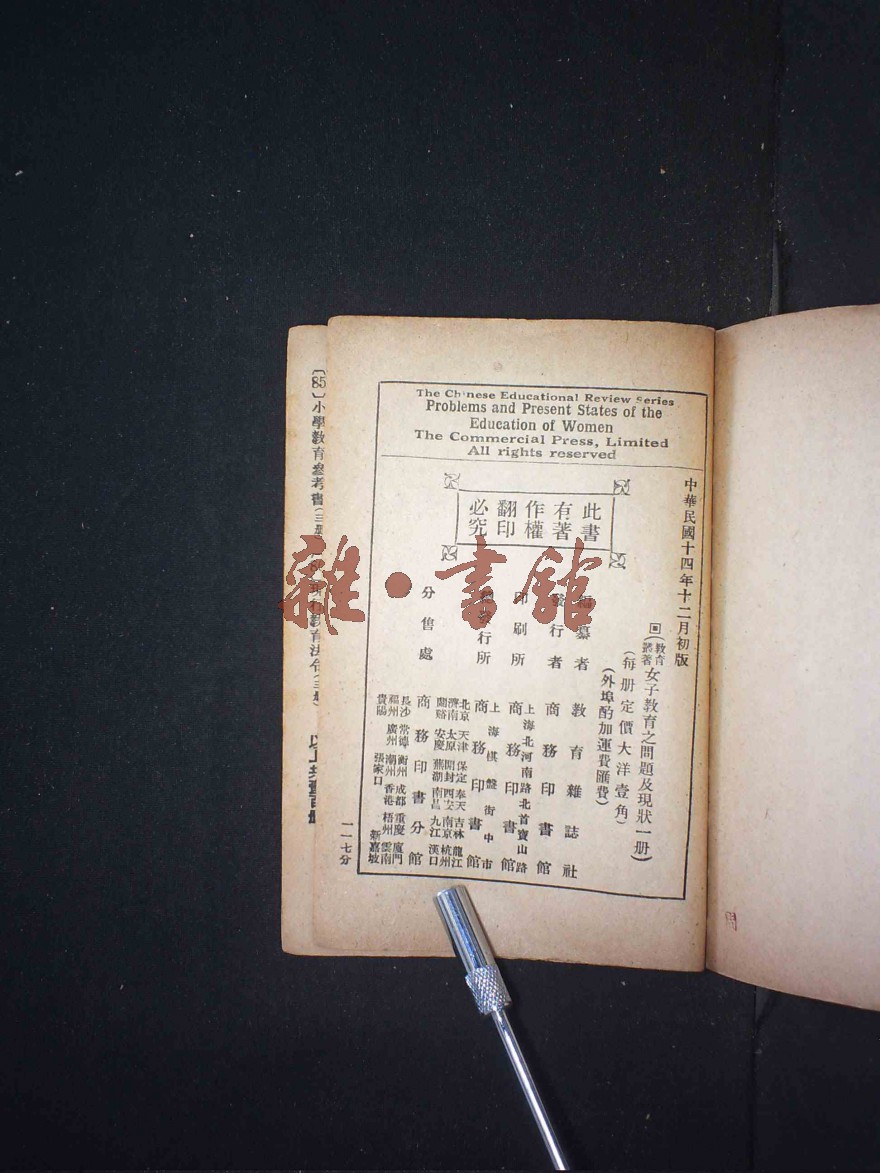 The Chinese Educational Review Series
Problems and Present States of the
Education of Women
The Commercial Press, Limited
All rights reserved
此書
有著
作權
翻印
必究
中華民國十四年十二月初版
(教育叢著女子教育之問題及現狀一册)
(每册定價大洋壹角)
(外埠酌加運費匯費)
編纂者 教育雜誌社
發行者 商務印書館
印刷所 上海北河南路北首寶山路 商務印書館
發行所 上海棋盤街中市 商務印書館
分售處 商務印書分館
北京 天津 保定 奉天 吉林 龍江
濟南 太原 開封 西安 南京 杭州
蘭谿 安慶 蕪湖 南昌 九江 漢口
長沙 常德 衡州 成都 重慶 廈門
福州 廣州 潮州 香港 梧州 雲南
貴陽 張家口 新嘉坡
一一七分
〔85〕小學教育參考書(三册)
現行教育法令(三册)
雜·書館